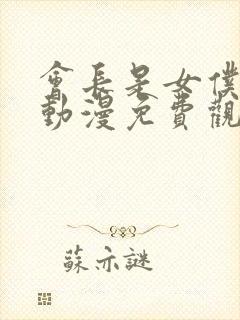 會長是女僕
動漫免費觀
蘇亦謎